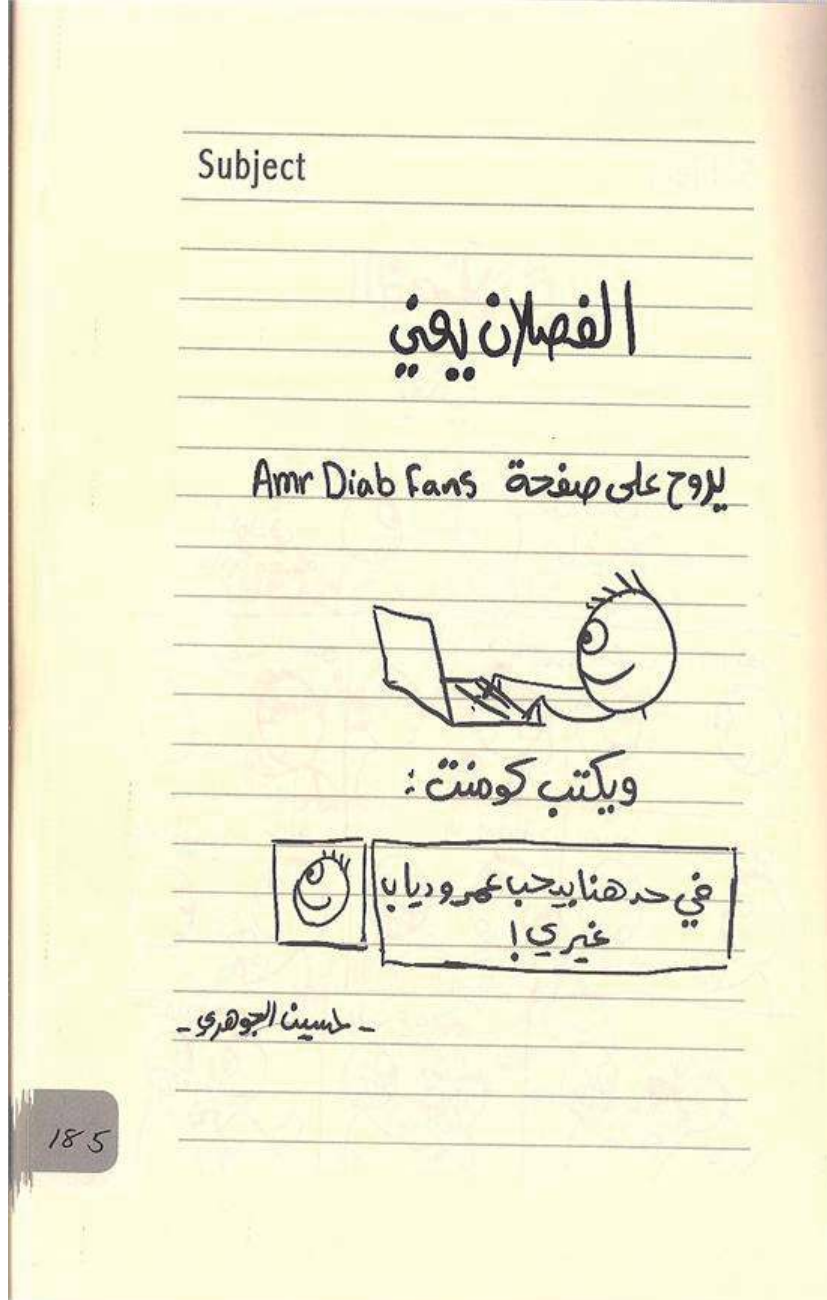 Subject
الفصلان يعني
يروح على صفحة Amr Diab Fans
ويكتب كومنت :
في حد هنا بيحب عمرو دياب
غيري !
- حسين الجوهري -
185